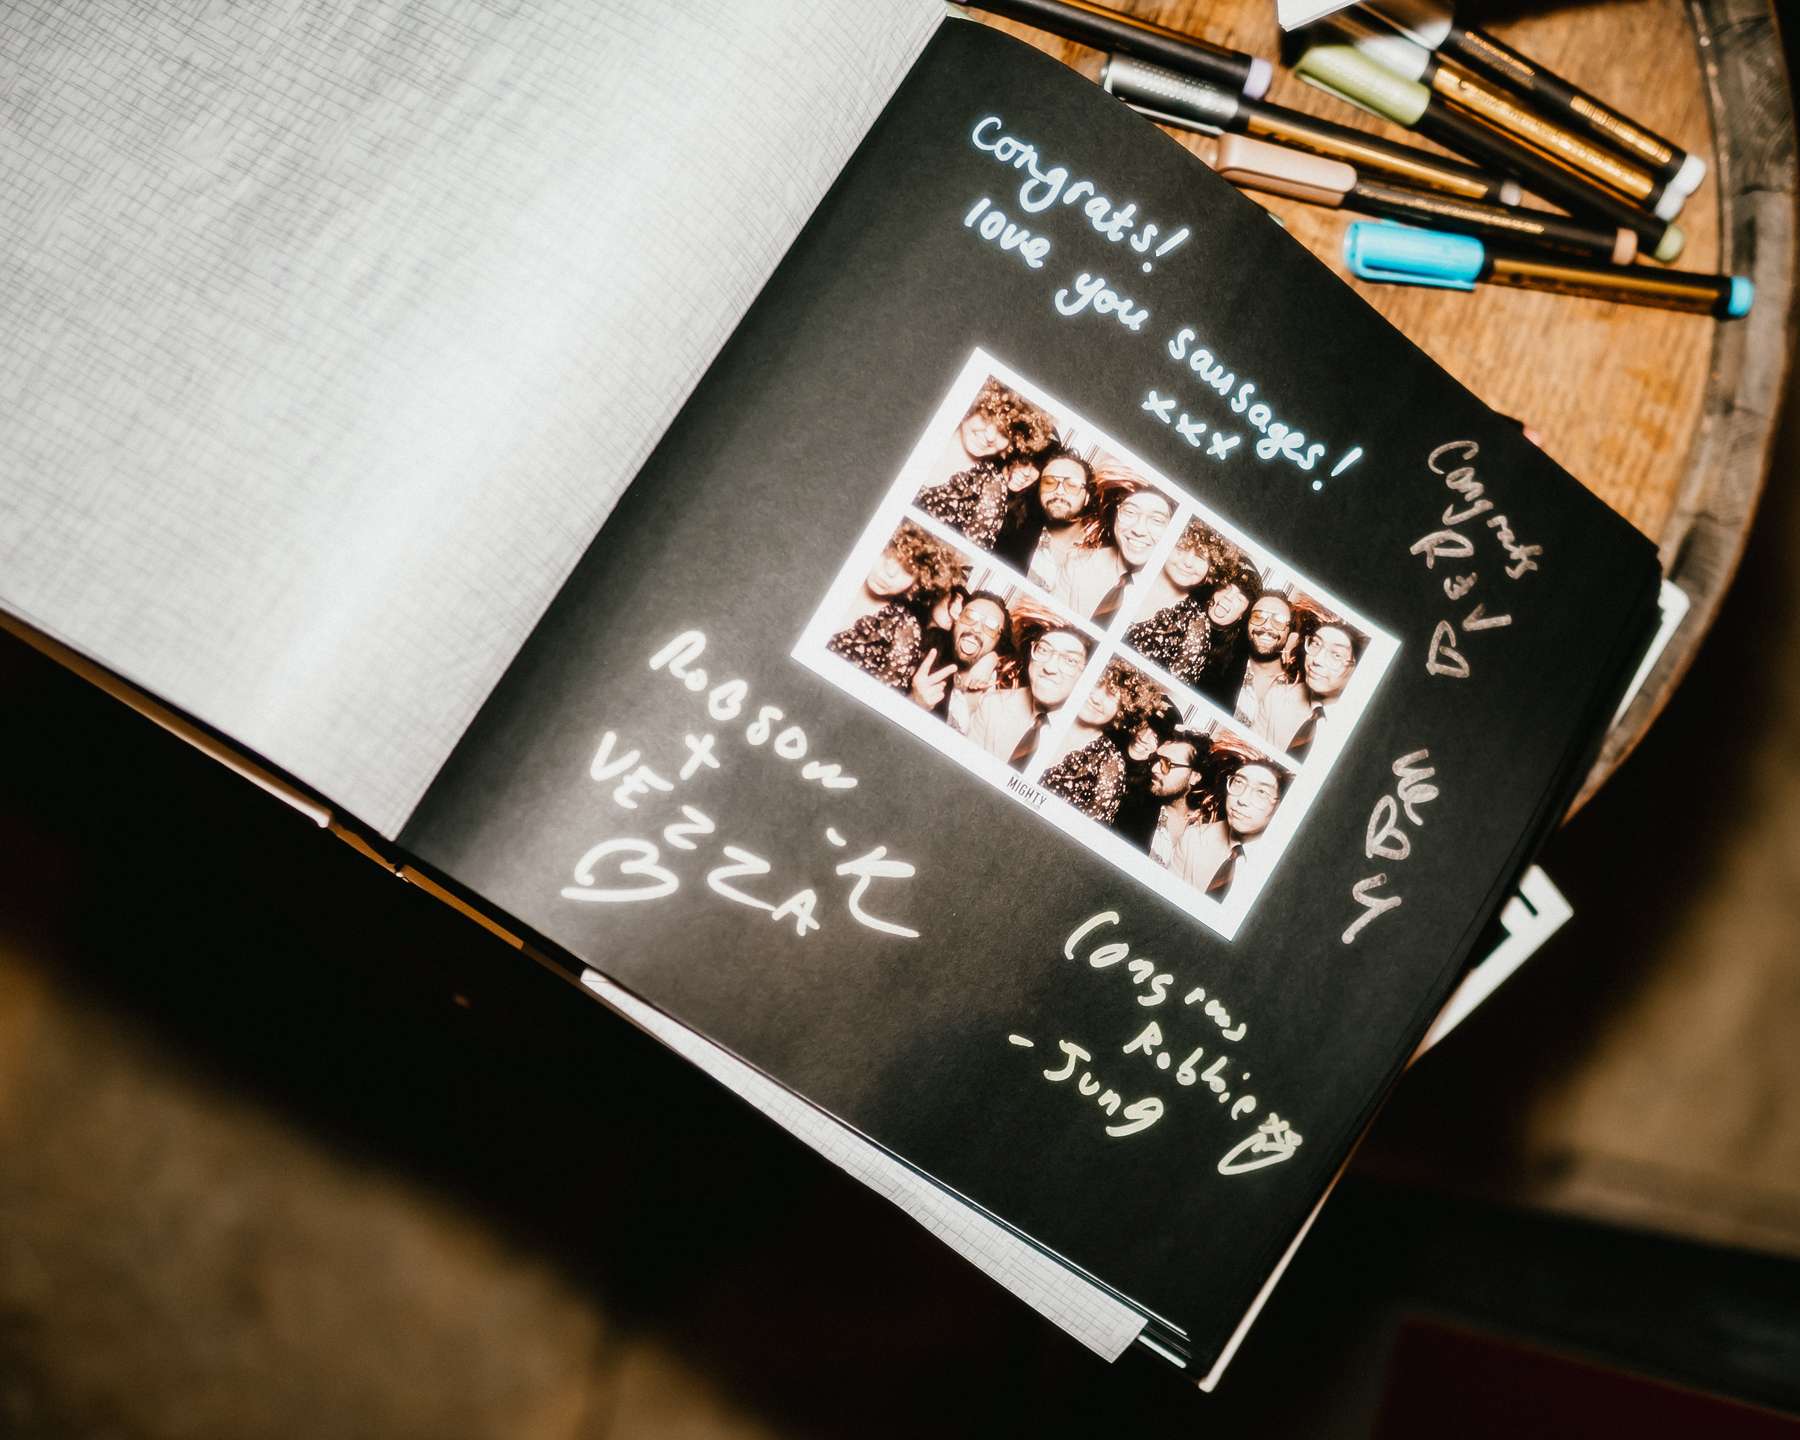 Congrats!
love you sausages!
xxx
Congrats
MIGHTY
RoBSON
+
VEZZA
-K
Congrats
Robbie
- Jung